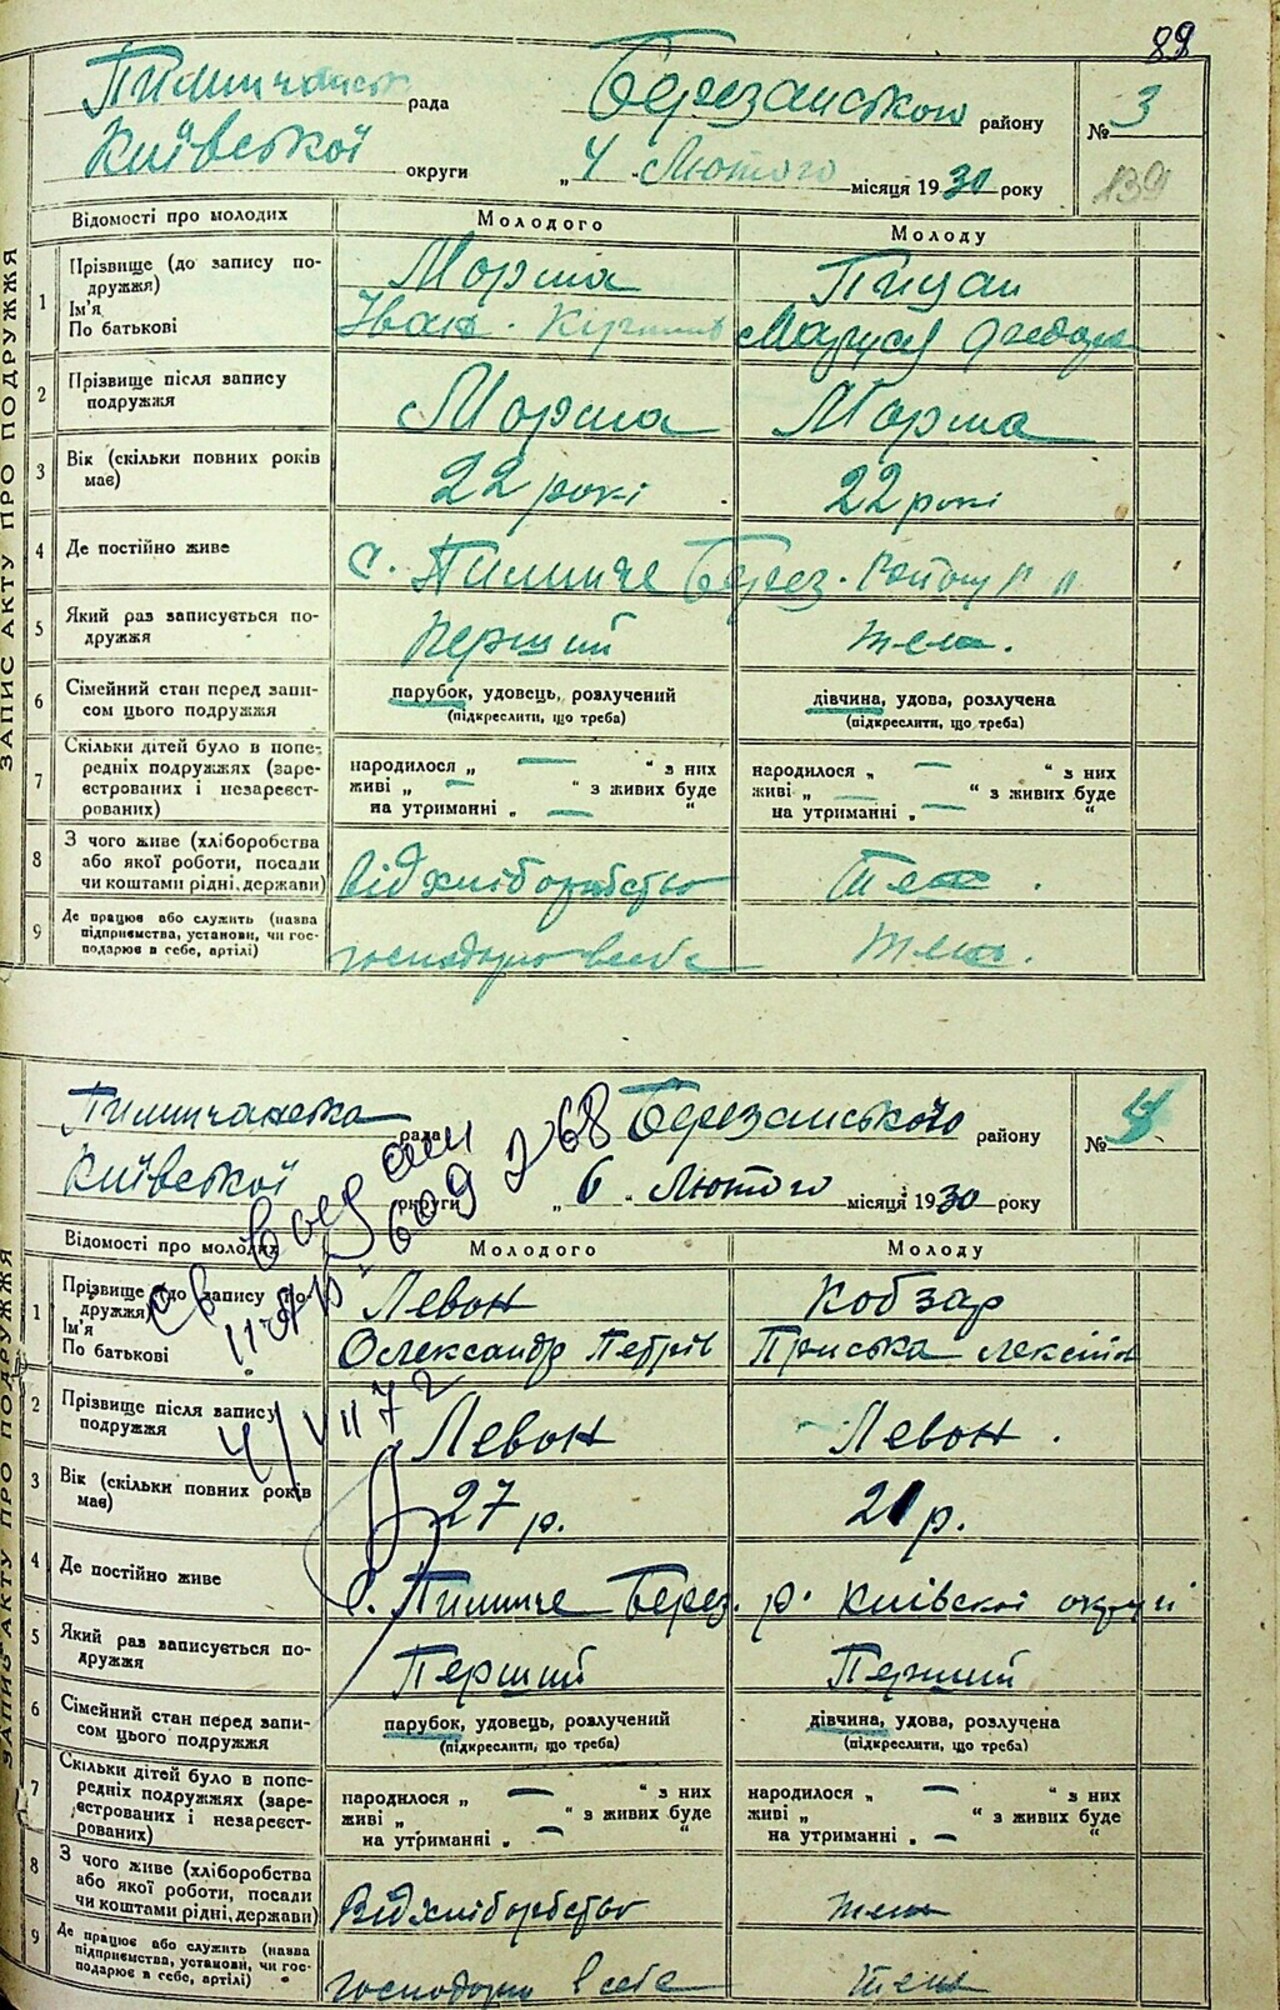 89
Пилипчанськ рада Березанського району № 3
Київської округи „ 4 " Лютого місяця 1930 року
139
ЗАПИС АКТУ ПРО ПОДРУЖЖЯ
Відомості про молодих Молодого Молоду
1 Прізвище (до запису по-
дружжя) Морма Пицан
Ім'я
По батькові Іван Маруся Федор
2 Прізвище після запису
подружжя Морма Морма
3 Вік (скільки повних років
має) 22 рокі 22 рокі
4 Де постійно живе с. Пилипче Берез. району " "
5 Який раз записується по-
дружжя Перший теж.
6 Сімейний стан перед запи-
сом цього подружжя парубок, удовець, розлучений дівчина, удова, розлучена
(підкреслити, що треба) (підкреслити, що треба)
7 Скільки дітей було в попе-
редніх подружжях (заре-
єстрованих і незареєст-
рованих) народилося „ — " з них народилося „ — " з них
живі „ — " з живих буде живі „ — " з живих буде
на утриманні „ — " на утриманні „ — "
8 З чого живе (хліборобства
або якої роботи, посади
чи коштами рідні, держави) Від хліборобство Теж.
9 Де працює або служить (назва
підприємства, установи, чи гос-
подарює в себе, артілі) господарю в себе теж.
Пилипчанська рада Березанського району № 4
Київської округи „ 6 " Лютого місяця 1930 року
св. выдан
609268
4/VII 72
ЗАПИС АКТУ ПРО ПОДРУЖЖЯ
Відомості про молодих Молодого Молоду
1 Прізвище (до запису по-
дружжя) Левон Кобзар
Ім'я
По батькові Олександр Петрів Приська лексіїв
2 Прізвище після запису
подружжя Левон Левон.
3 Вік (скільки повних років
має) 27 р. 21 р.
4 Де постійно живе с. Пилипче Берез. р. Київскої округи
5 Який раз записується по-
дружжя Перший Перший
6 Сімейний стан перед запи-
сом цього подружжя парубок, удовець, розлучений дівчина, удова, розлучена
(підкреслити, що треба) (підкреслити, що треба)
7 Скільки дітей було в попе-
редніх подружжях (заре-
єстрованих і незареєст-
рованих) народилося „ — " з них народилося „ — " з них
живі „ " з живих буде живі „ " з живих буде
на утриманні „ — " на утриманні „ — "
8 З чого живе (хліборобства
або якої роботи, посади
чи коштами рідні, держави) Від хліборобство теж
9 Де працює або служить (назва
підприємства, установи, чи гос-
подарює в себе, артілі) господарю в себе теж